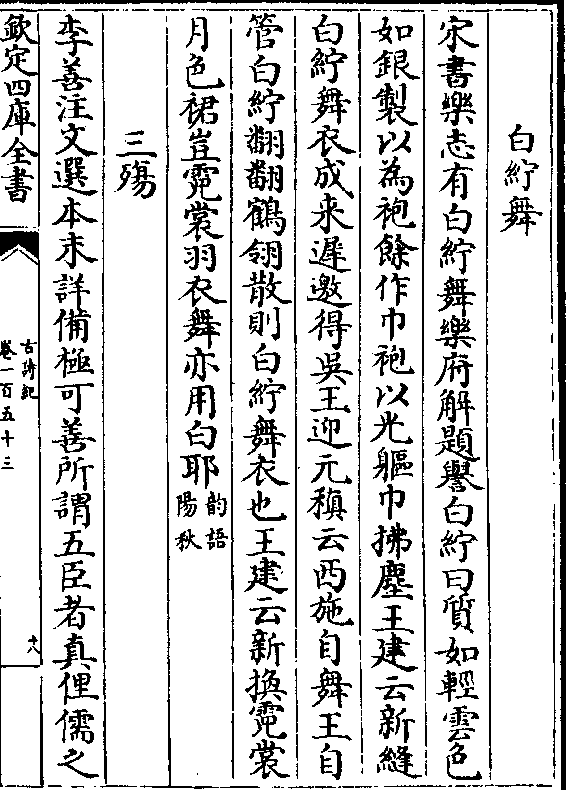 白紵舞
宋書樂志有白紵舞樂府解題譽白紵曰質如輕雲色
如銀製以為袍餘作巾袍以光軀巾拂塵王建云新縫
白紵舞衣成来遲邀得吳王迎元稹云西施自舞王自
管白紵翻翻鶴翎散則白紵舞衣也王建云新換霓裳
月色裙豈霓裳羽衣舞亦用白耶韵語陽秋
三殤
李善注文選本末詳備極可善所謂五臣者真俚儒之
欽定四庫全書
古詩紀
卷一百五十三
十八